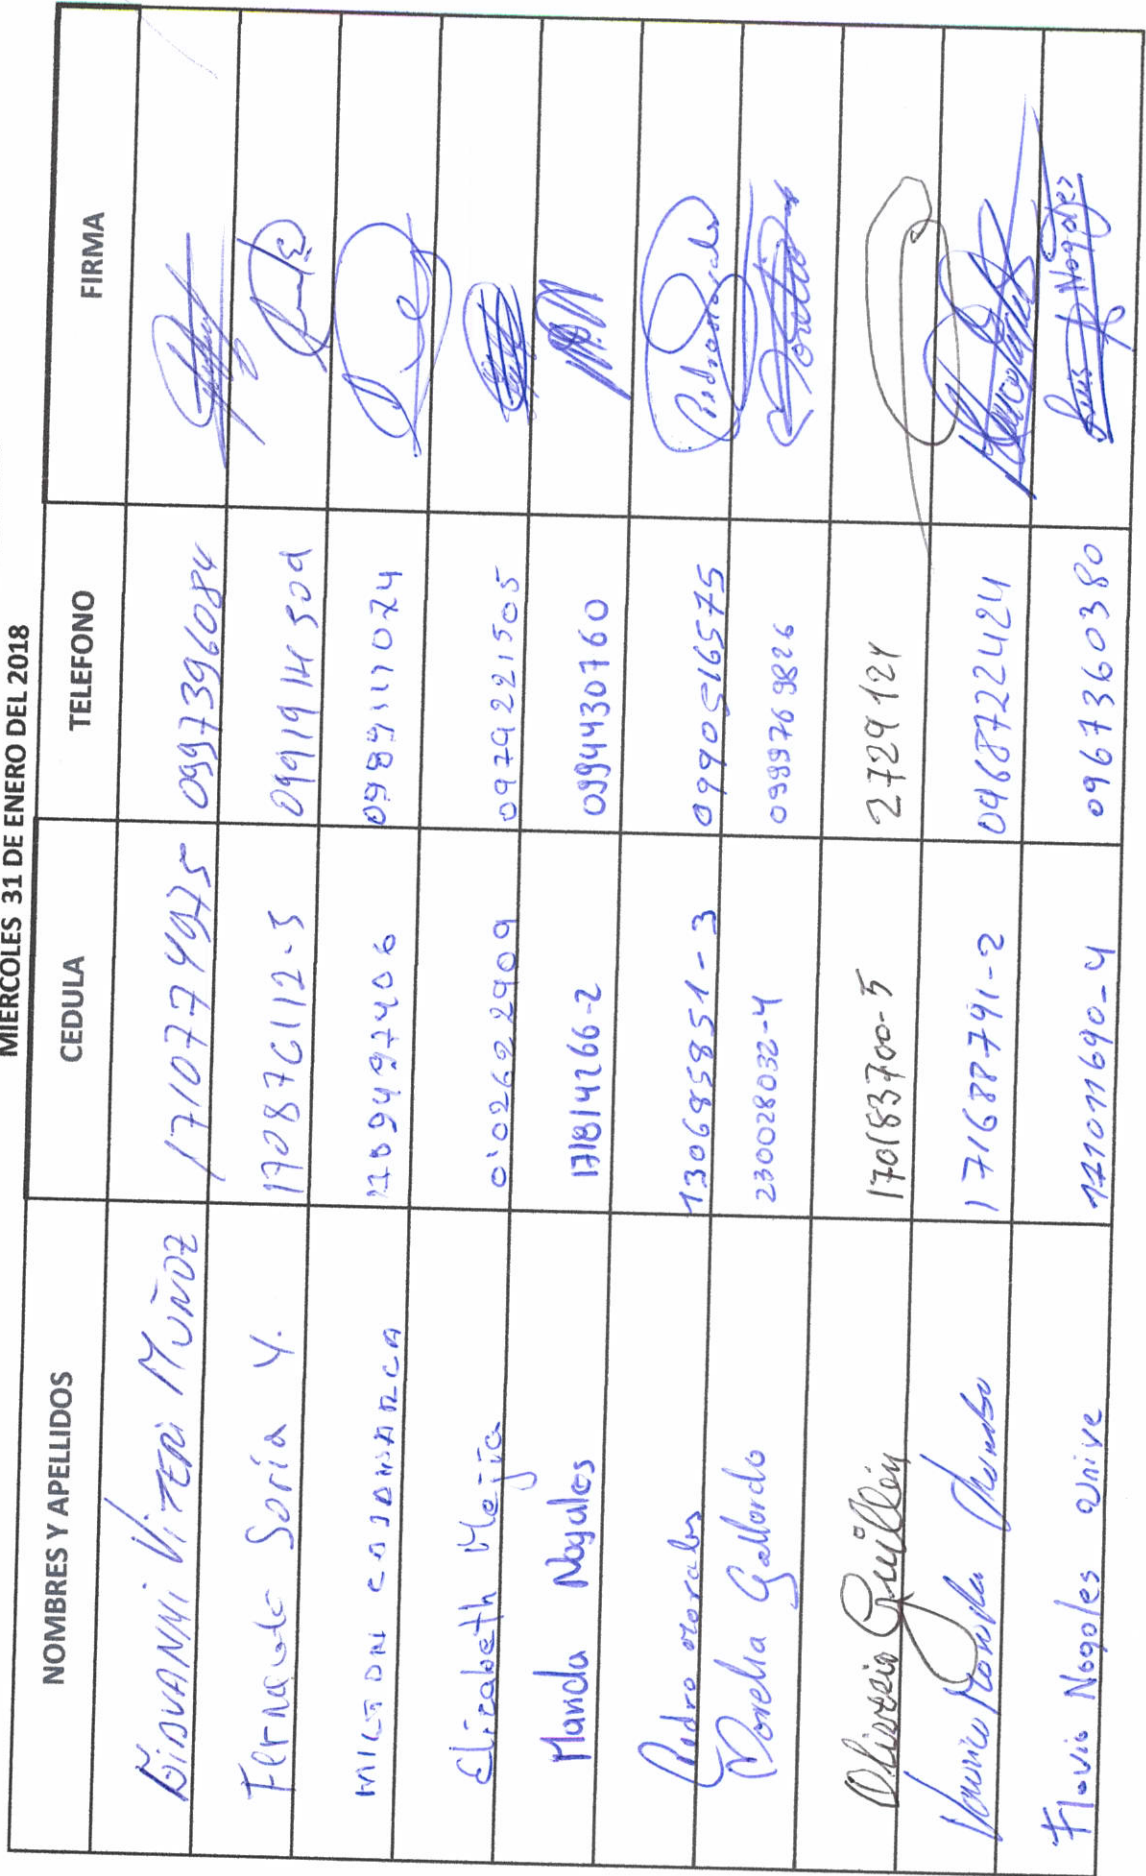 MIERCOLES 31 DE ENERO DEL 2018
NOMBRES Y APELLIDOS CEDULA TELEFONO FIRMA
GIOVANNI VITERI MUÑOZ 1710774975 0997396084
Fernando Soria Y. 170876112-5
MILTON COJOMARCA 0989111074
Elizabeth Mejia 0979221505
Marida Nogales 171814266-2 0994430760
Pedro Morales 130685851-3 0990516575 Pedro Morales
Morelia Gallardo 230028032-4 0999769826 Morelia
Olivero Guillén 170183700-5 2729124
171688791-2 0968722424
Flavio Nogales 171011690-4 0967360380 Nogales